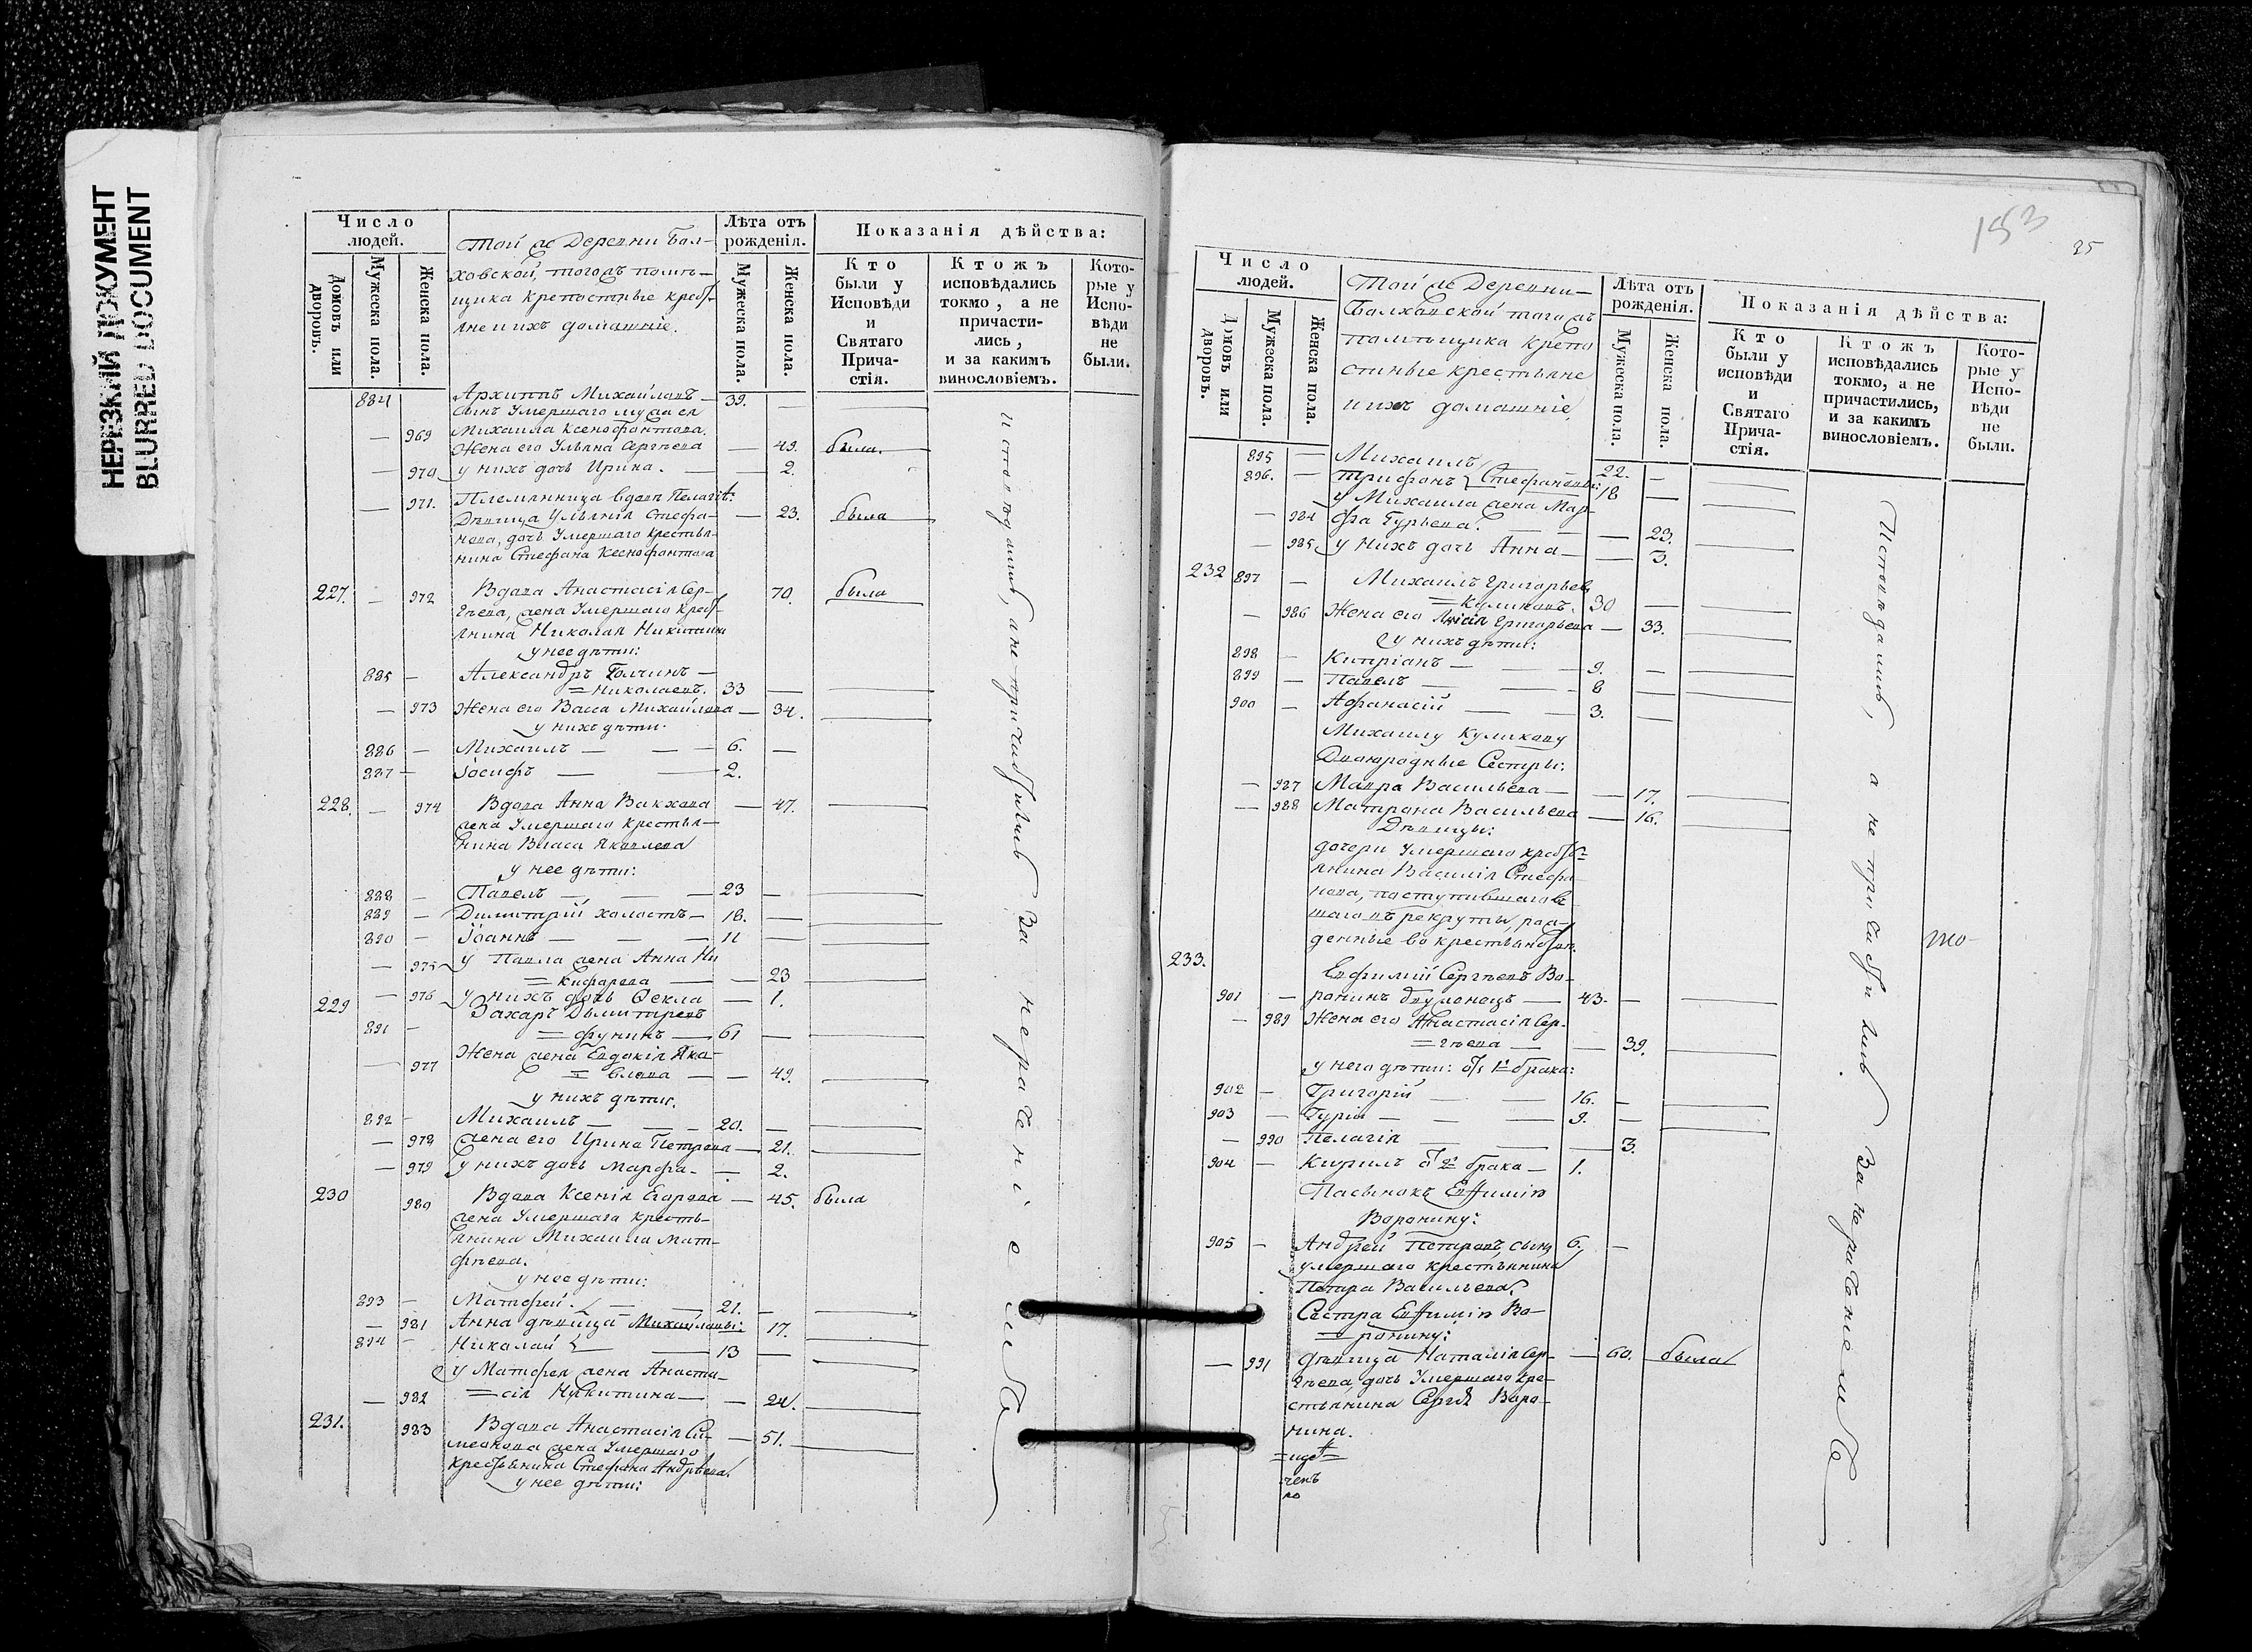 НЕРЕЗКИЙ ДОКУМЕНТ
BLURRED DOCUMENT
Число людей.
Домовъ или дворовъ.
Мужеска пола.
Женска пола.
Той же Деревни Бал-
ховской, тогожъ помѣ-
щика крепостные крес-
яне и ихъ домашніе.
Лѣта отъ рожденія.
Мужеска пола.
Женска пола.
Показанія дѣйства:
Кто были у Исповѣди и Святаго Причастія.
Ктожъ исповѣдались токмо, а не причастились, и за какимъ винословіемъ.
Которые у Исповѣди не были.
884 Архиппъ Михайловъ — 39.
сынъ Умершаго мужа ея
Михаила Ксенофонтова.
— 969 Жена его Ульяна Сергѣева — 49. была.
— 970 у нихъ дочь Ирина. — 2.
— 971. Племянница вдовы Пелагіи:
Дѣвица Ульянія Стефа- — 23. была
нова, дочь Умершаго крестья-
нина Стефана Ксенофонтова
227. — 972 Вдова Анастасія Сер- 70. была
гѣева, жена Умершаго крес-
янина Николая Никитина
у нее дѣти:
885 — Александръ Толчинъ —
= Николаевъ. 33 —
— 973 Жена его Васса Михайлова — 34.
у нихъ дѣти.
886 — Михаилъ — — 6. —
887 — Іосифъ — — 2.
228. — 974 Вдова Анна Вакхова — 47.
жена Умершаго крестья-
нина Власа Яковлева
у нее дѣти:
888 — Павелъ — — 23 —
889 — Димитрій холостъ — 18. —
890 — Іоаннъ — — — 11 —
— 975 у Павла жена Анна Ни
= кифорова — — 23
— 976 у нихъ дочь Ѳекла — 1.
229 Захаръ Димитріевъ
891 — = Фунинъ — 61 —
— 977 Жена жена Евдокія Яко-
= влева — — 49.
у нихъ дѣти.
892 — Михаилъ — — 20. —
— 978 жена его Ирина Петрова — 21.
— 979 у нихъ дочь Марфа. — 2.
230 980 Вдова Ксенія Егорова — 45. была
жена Умершаго кресть-
янина Михаила Мат-
фѣева.
у нее дѣти:
893 — Матфей — — 21. —
— 981 Анна дѣвица Михайловы: 17.
894 — Николай — 13 —
у Матфея жена Анаста-
— 982 = сія Никитина — — 24.
231. 983 Вдова Анастасія Си- — 51.
меонова жена Умершаго
крестьянина Стефана Андрѣева.
у нее дѣти:
Исповѣдались, а не причастились За нераченіемъ
153
25
Число людей.
Домовъ или дворовъ.
Мужеска пола.
Женска пола.
Той же Деревни—
Балховской тогожъ
помѣщика крепо
стные крестьяне
и ихъ домашніе,
Лѣта отъ рожденія.
Мужеска пола.
Женска пола.
Показанія дѣйства:
Кто были у исповѣди и Святаго Причастія.
Ктожъ исповѣдались токмо, а не причастились, и за какимъ винословіемъ.
Которые у Исповѣди не были.
895 — Михаилъ 22. —
896. — Трифонъ Стефановы: 18 —
у Михаила жена Мар-
— 984 фа Гурьева. — — 23.
— 985 у нихъ дочь Анна — — 3.
232 897 — Михаилъ Григорьевъ
= Куликовъ. 30 —
— 986 Жена его Анисія Григорьева — 33.
у нихъ дѣти:
898 — Кипріанъ — — 9. —
899 — Павелъ — — 8 —
900 — Аѳанасій — — 3. —
Михаилу Куликову
Двоюродные Сестры:
— 987 Мавра Васильева — — 17.
— 988 Матрона Васильева — 16.
Дѣвицы:
дочери Умершаго крес-
янина Василія Стефа-
нова, поступившаго бы
шаго въ рекруты, рож-
денные въ крестьянствѣ.
233.
Евфимій Сергѣевъ Во-
901 — ронинъ двуженецъ — 43. —
— 989 Жена его Анастасія Сер-
= гѣева — — 39.
у него дѣти: отъ 1го брака:
902 — Григорій — — 16. —
903 — Гурій — — 9. —
— 990 Пелагія — — 3.
904 — Кирилъ отъ 2го брака — 1.
Пасынокъ Евфимія
Воронину:
905 — Андрей Петровъ, сынъ 6. —
умершаго крестьянина
Петра Васильева,
Сестра Евфимія Во-
= ронину:
— 991 дѣвица Наталія Сер- — 60. была
гѣева, дочь Умершаго кре-
стьянина Сергѣя Воро-
нина.
Исповѣдались, а не причастились За нераченіемъ
то